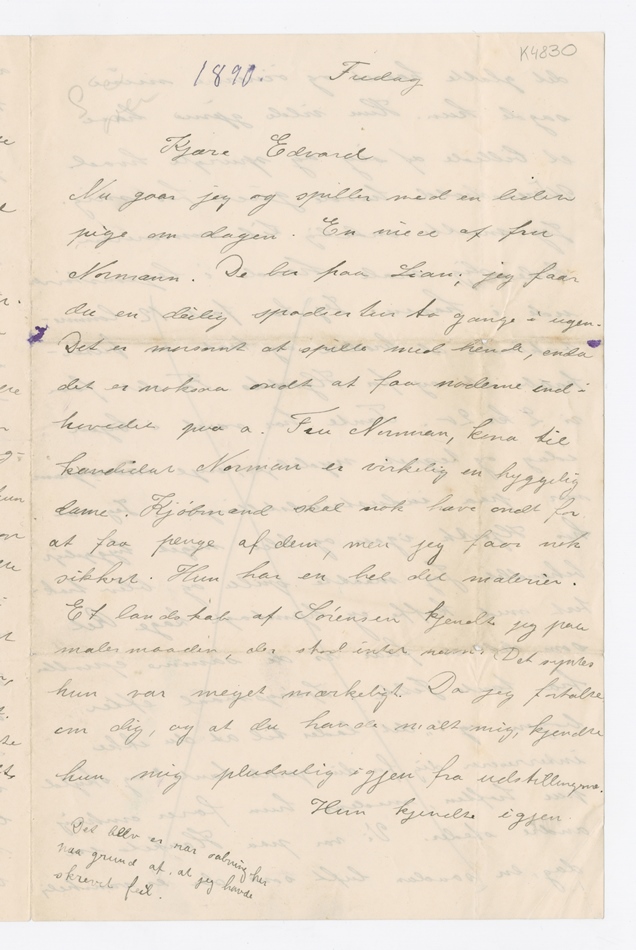 K4830
1890. Fredag
Kjære Edvard
Nu gaar jeg og spiller med en liden
pige om dagen. En niece af fru
Normann. De bor paa Lian; jeg faar
da en deilig spadsertur to gange i ugen.
Det er morsomt at spille med hende, enda
det er noksaa ondt at faa noderne ind i
hovedet paa a. Fru Norman, kona til
kandidat Norman er virkelig en hyggelig
dame. Kjøbmænd skal nok have ondt for
at faa penge af dem, men jeg faar nok
sikkert. Hun har en hel del malerier.
Et landskab af Sørensen kjendte jeg paa
malermaaden, der stod intet navn. Det syntes
hun var meget mærkeligt. Da jeg fortalte
om dig, og at du havde malt mig, kjendte
hun mig pludselig igjen fra udstillingen.
Hun kjendte igjen
Det er
paa grund af at jeg havde
skrevet feil.